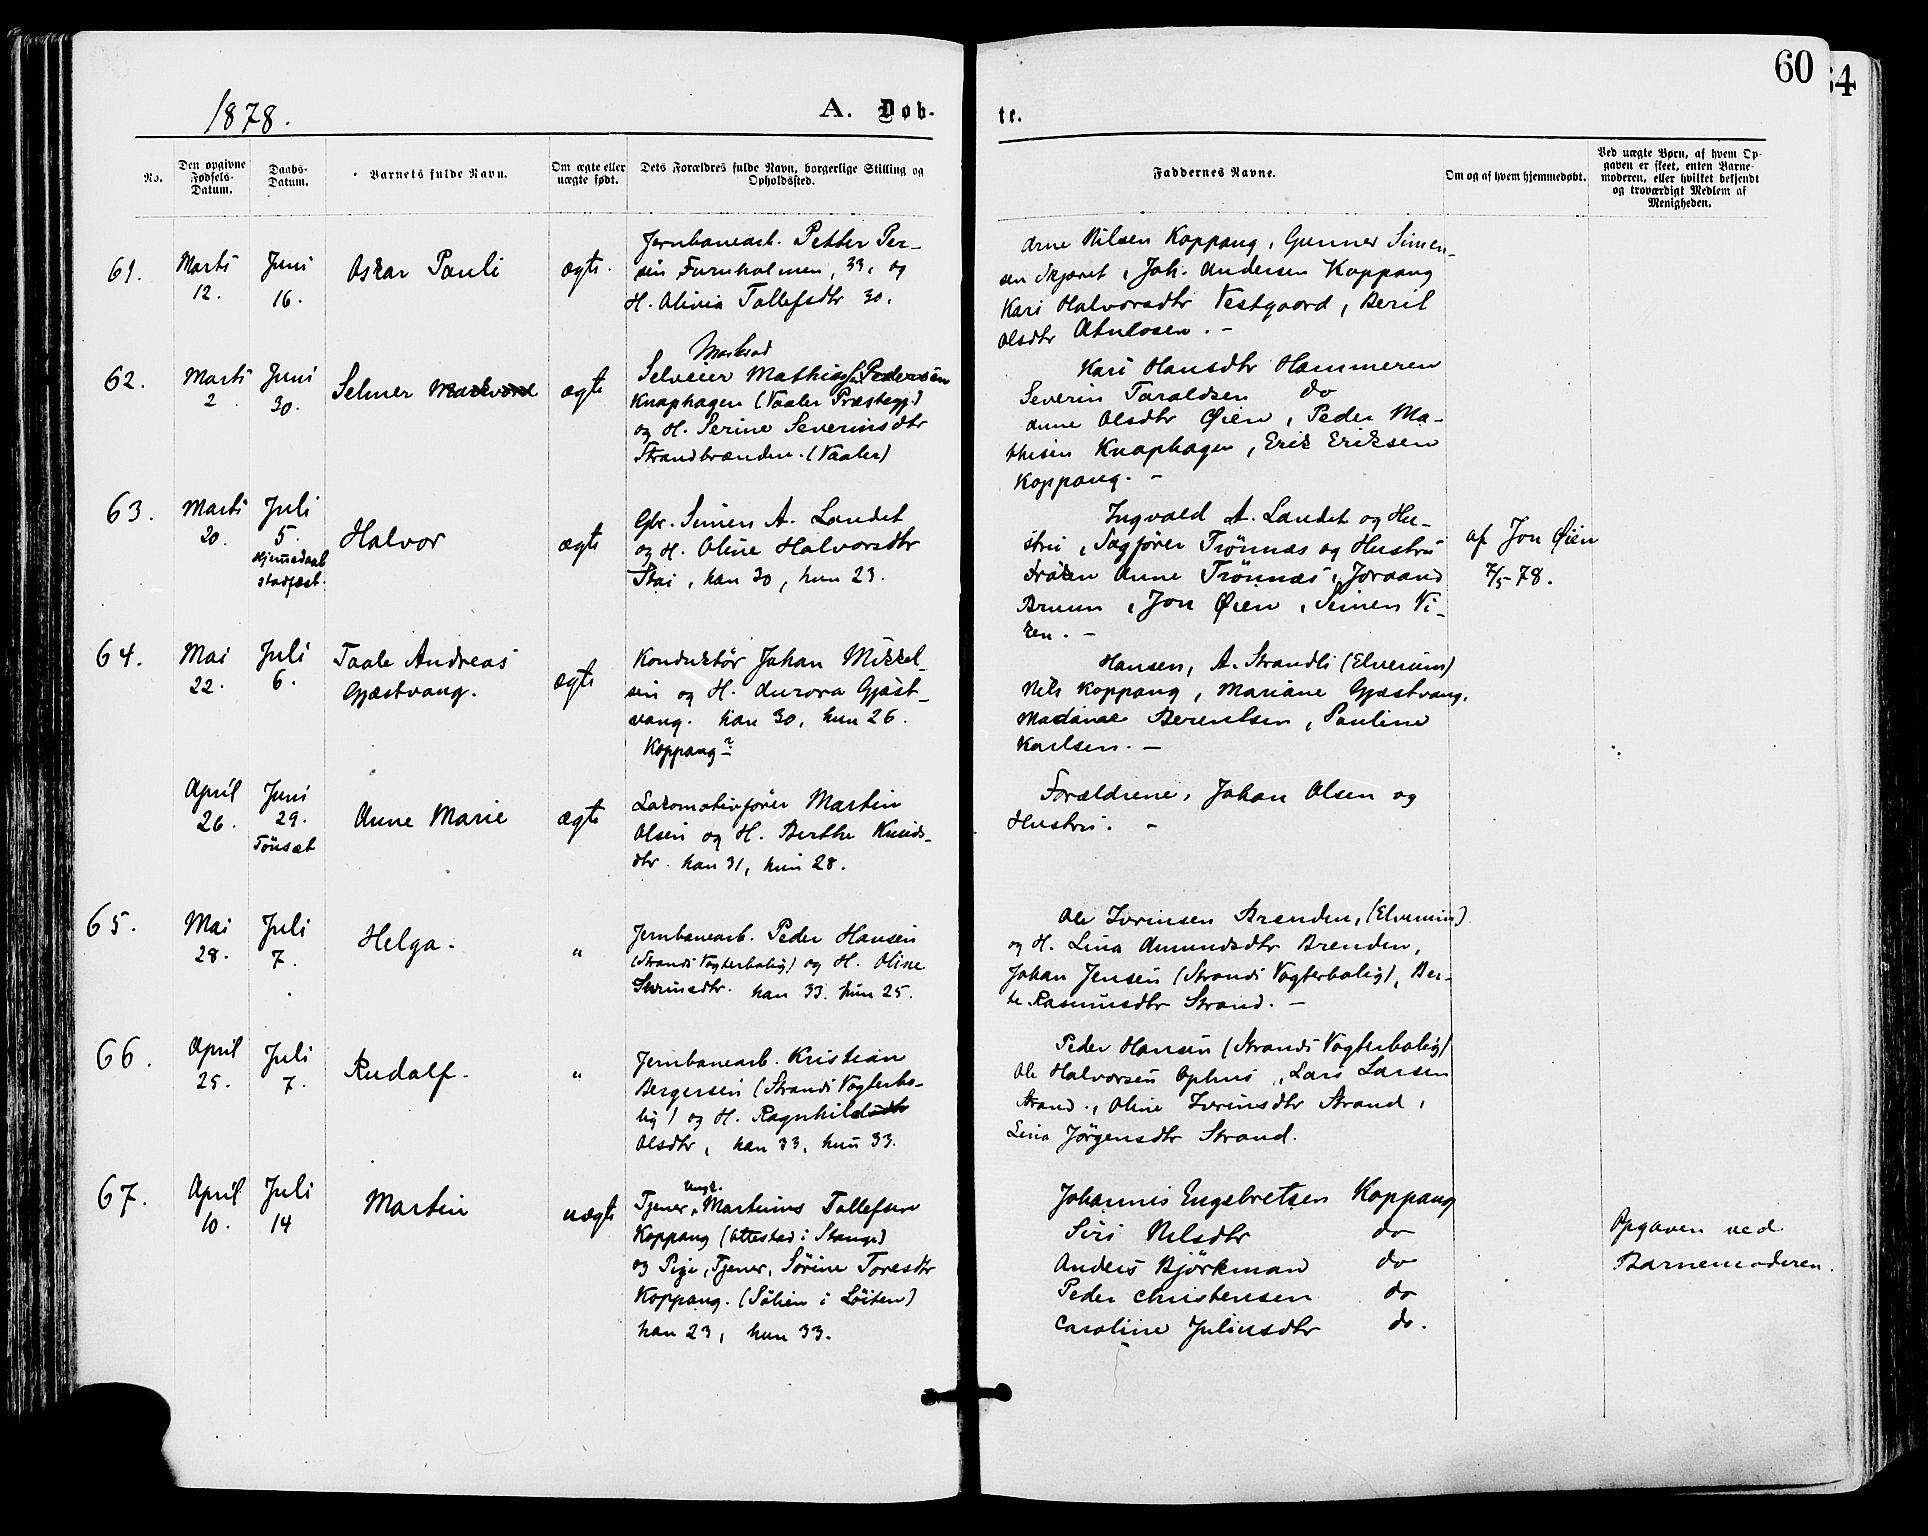 60
64
1878.
A. Døb-
te.
No.
Den opgivne Fødsels-Datum.
Daabs-Datum.
Barnets fulde Navn.
Om ægte eller uægte født.
Dets Forældres fulde Navn, borgerlige Stilling og Opholdssted.
Faddernes Navne.
Om og af hvem hjemmedøbt.
Ved uægte Børn, af hvem Op-
gaven er skeet, enten Barne-
moderen, eller hvilket bekjendt
og troværdigt Medlem af
Menigheden.
61.
Marts
12.
Juni
16.
Oskar Pauli
ægte.
Jernbanearb. Petter Per-
sen Furuholmen, 33, og
H. Olivia Tollefsdtr 30.
Arne Nilsen Koppang, Gunner Simen-
sen Skjæret, Joh. Andersen Koppang
Kari Halvorsdtr Vestgaard, Beril
Olsdtr Atnlosen. -
62.
Marts
2
Juni
30.
Selmer Markvard
ægte
Markvad
Selveier Mathias Pedersen
Knaphagen (Vaaler Præstegj.)
og H. Serine Severinsdtr
Strandbrænden. (Vaaler)
Kari Hansdtr Hammeren
Severin Taraldsen do
Anne Olsdtr Øien, Peder Ma-
thisen Knaphagen, Erik Eriksen
Koppang. -
63.
Marts
20.
Juli
5.
Hjemmedaab
stadfæst.
Halvor
ægte
Gbr. Simen A. Landet
og H. Oline Halvorsdtr
Stai, han 30, hun 23.
Ingvald A. Landet og Hu-
stru, Sagfører Trønnæs og Hustru
Frøken Anne Trønnæs, Joraand
Bruun, Jon Øien, Simen Vi-
ken. -
af Jon Øien
7/5-78.
64.
Mai
22.
Juli
6.
Taale Andreas
Gjæstvang.
ægte
Konduktør Johan Mikkel-
sen og H. Aurora Gjæst-
vang. han 30, hun 26.
Koppang
Hansen, A. Strandli (Elverum)
Nils Koppang, Mariane Gjæstvang,
Madame Berentsen, Pauline
Karlsen. -
April
26.
Juni
29.
Tönsæt
Anne Marie
ægte
Lokomotivfører Martin
Olsen og H. Berthe Knuds-
dtr. han 31, hun 28.
Forældrene, Johan Olsen og
Hustru. -
65.
Mai
28.
Juli
7.
Helga.
"
Jernbanearb. Peder Hansen
(Strands Vogterbolig) og H. Oline
Iverinsdtr. han 33. hun 25.
Ole Iverinsen Brænden, (Elverum)
og H. Lina Amundsdtr Brenden,
Johan Jensen (Strands Vogterbolig), Ber-
te Rasmusdtr Strand. -
66.
April
25.
Juli
7.
Rudolf.
"
Jernbanearb. Kristian
Bergersen (Strands Vogterbo-
lig) og H. Ragnhild
Olsdtr, han 33, hun 33.
Peder Hansen (Strands Vogterbolig)
Ole Halvorsen Ophus, Lars Larsen
Strand., Oline Iverinsdtr Strand,
Lina Jörgensdtr Strand.
67.
April
10.
Juli
14
Martin
uægte
Ungk.
Tjener, Martinus Tollefsen
Koppang (Ottestad i Stange)
og Pige, Tjener, Sørine Toresdtr
Koppang. (Sölien i Löiten)
han 23, hun 33.
Johannes Engebretsen Koppang
Siri Nilsdtr do
Anders Björkman do
Peder Christensen do
Caroline Juliusdtr do.
Opgaven ved
Barnemoderen.